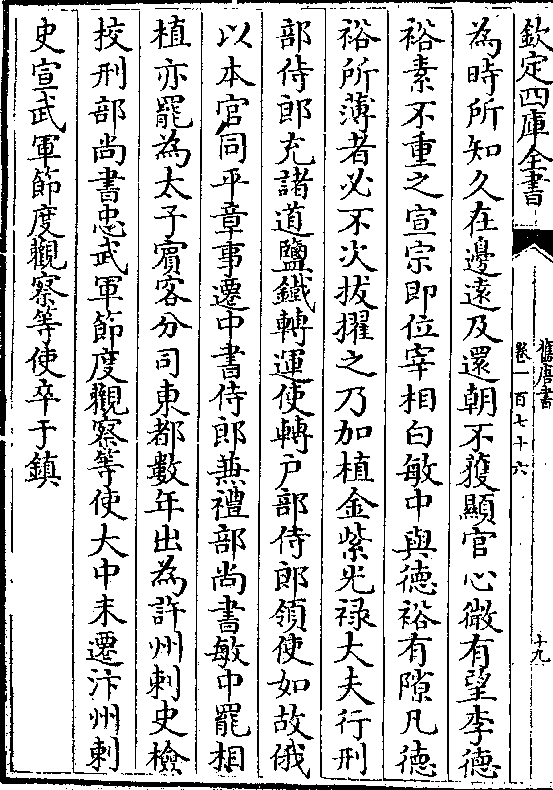 欽定四庫全書
舊唐書
卷一百七十六
十九
為時所知久在邊遠及還朝不獲顯官心微有望李德
裕素不重之宣宗即位宰相白敏中與德裕有隙凡德
裕所薄者必不次拔擢之乃加植金紫光禄大夫行刑
部侍郎充諸道鹽鐵轉運使轉户部侍郎領使如故俄
以本官同平章事遷中書侍郎兼禮部尚書敏中罷相
植亦罷為太子賓客分司東都數年出為許州刺史檢
挍刑部尚書忠武軍節度觀察等使大中末遷汴州刺
史宣武軍節度觀察等使卒于鎮